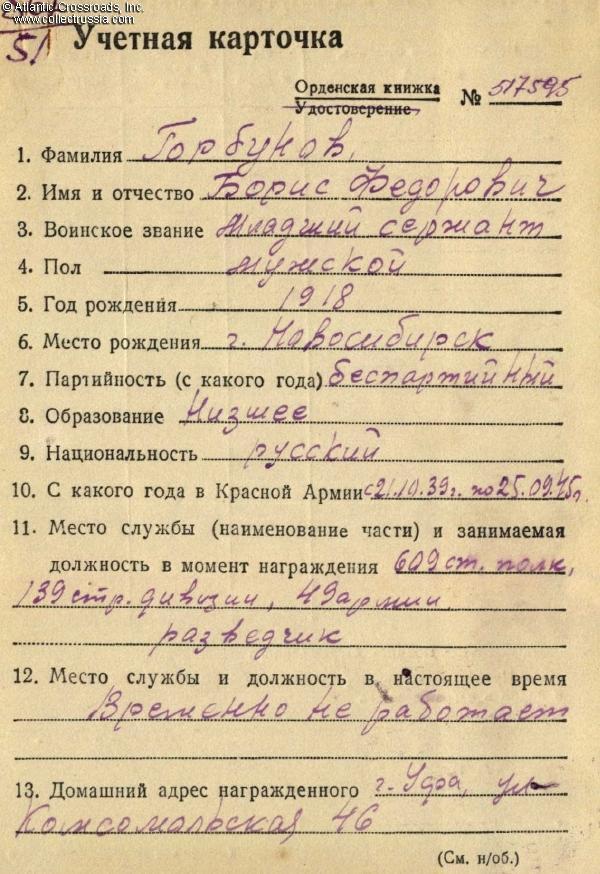 © Atlantic Crossroads, Inc.
www.collectrussia.com
51
Учетная карточка
Орденская книжка
Удостоверение
№ 517595
1. Фамилия Горбунов
2. Имя и отчество Борис Федорович
3. Воинское звание младший сержант
4. Пол мужской
5. Год рождения 1918
6. Место рождения г. Новосибирск
7. Партийность (с какого года) беспартийный
8. Образование Низшее
9. Национальность русский
10. С какого года в Красной Армии с 21.10.39г. по 25.09.45г.
11. Место службы (наименование части) и занимаемая
должность в момент награждения 609 ст. полк,
139 стр. дивизии, 49 армии
разведчик
12. Место службы и должность в настоящее время
Временно не работает
13. Домашний адрес награжденного г. Уфа, ул
Комсомольская 46
(См. н/об.)